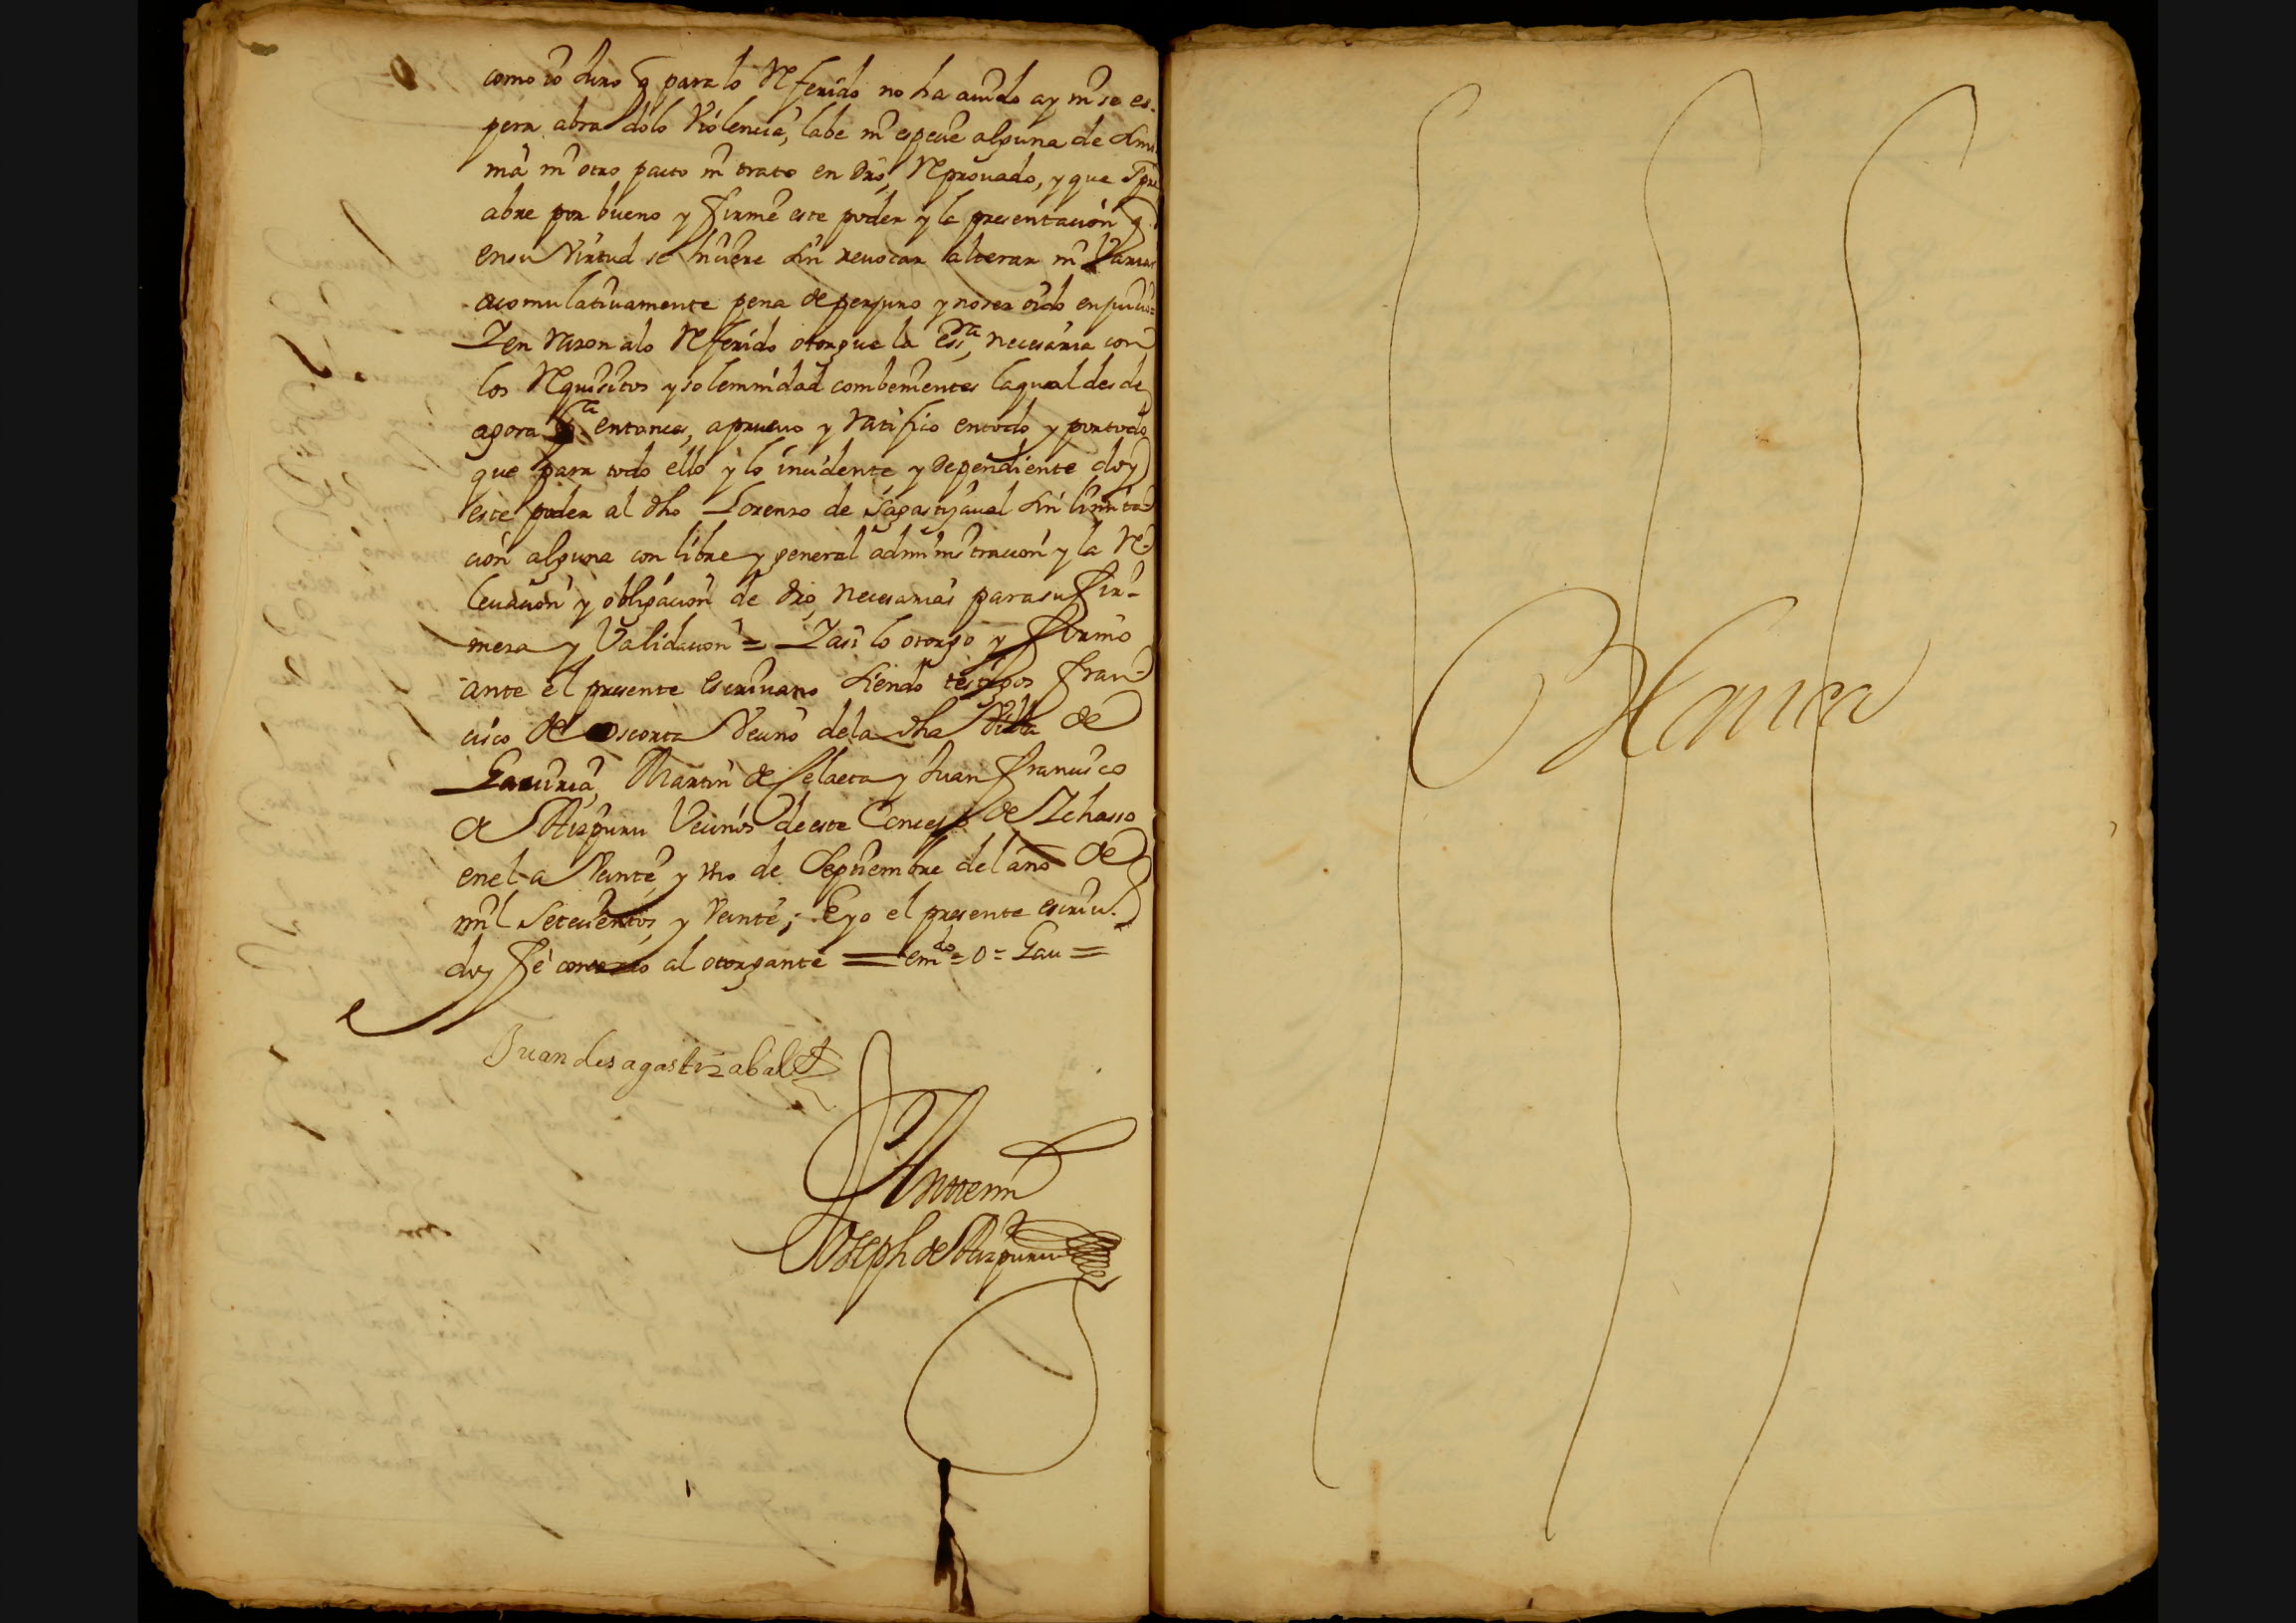 como io Juro q para lo Referido no ha auido ay ni se es-
pera abra dolo Violencia, labe ni especie alguna de simo-
nia ni otro pacto ni trato en dro, Reprouado, y que spre
abre por bueno y firme este poder y la presentacion q
en su Virtud se hiciere sin reuocar alterar ni Variar
acomulatiuamente pena de perjuro y no ser oido en juicio=
I en razon alo Referido otorgue la essra necesaria con
los Requisitos y solemnidad combenientes la qual desde
agora pa entonces, aprueuo y ratifico en todo y por todo
que para todo ello y lo incidente y dependiente doy
este poder al dho Lorenzo de Sagastiçaual sin limita-
cion alguna con libre y general administracion y la Re-
leuacion y obligacion de dro, necesarias para su fir-
meza y Validacion = I asi lo otorgo y firmo
ante el presente escriuano siendo testigos fran-
cisco de Oscorta Vecino de la dha Villa de
Gauiria, Martin de Zelaeta y Juan francisco
de Aizpuru Vecinos de este Concejo de Ichasso
en el a Veinte y vno de Septiembre del año de
mil Setecientos y Veinte; E yo el presente escriu.
doy fe conozco al otorgante = emdo = O = Gau =
Juan de sagastizabal
Ante mi
Joseph de Aizpuru
Blanca